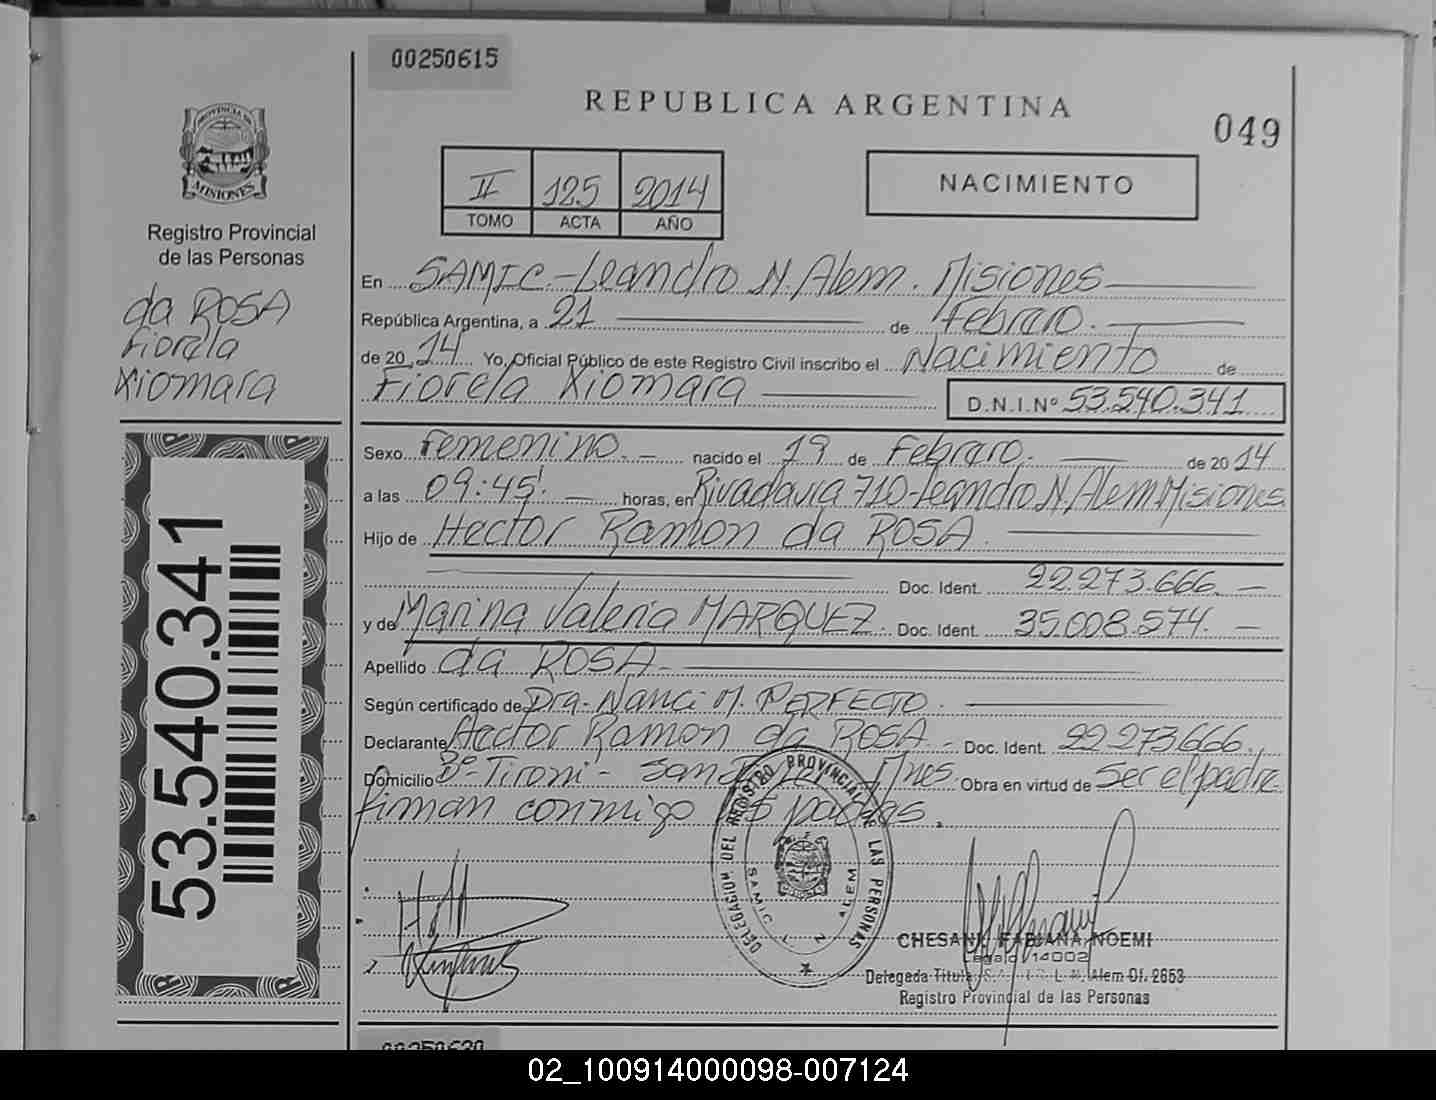 00250615
REPUBLICA ARGENTINA
049
PROVINCIA DE
MISIONES
Registro Provincial
de las Personas
II 125 2014
TOMO ACTA AÑO
NACIMIENTO
da ROSA
Fiorela
Xiomara
En SAMIC - Leandro N. Alem. Misiones
República Argentina, a 21 de Febrero.
de 20 14 Yo, Oficial Público de este Registro Civil inscribo el Nacimiento de
Fiorela Xiomara D.N.I.Nº 53.540.341
Sexo Femenino. - nacido el 19 de Febrero. de 20 14
a las 09:45'. horas, en Rivadavia 710-Leandro N. Alem Misiones
Hijo de Hector Ramon da ROSA.
Doc. Ident. 22.273.666. -
y de Marina Valeria MARQUEZ. Doc. Ident. 35.008.574. -
Apellido da ROSA -
Según certificado de Dra. Nanci M. PERFECTO.
Declarante Hector Ramon da ROSA - Doc. Ident. 22.273.666.,
Domicilio Bº Tironi - San Mnes. Obra en virtud de Ser el padre
Firman conmigo los padres.
53.540.341
DELEGACION DEL REGISTRO PROVINCIAL DE LAS PERSONAS
SAMIC L N ALEM
CHESANI, FABIANA NOEMI
Legajo 14002
Delegada Titular S.A.M.I.C. L. N. Alem Of. 2653
Registro Provincial de las Personas
00250620
02_100914000098-007124